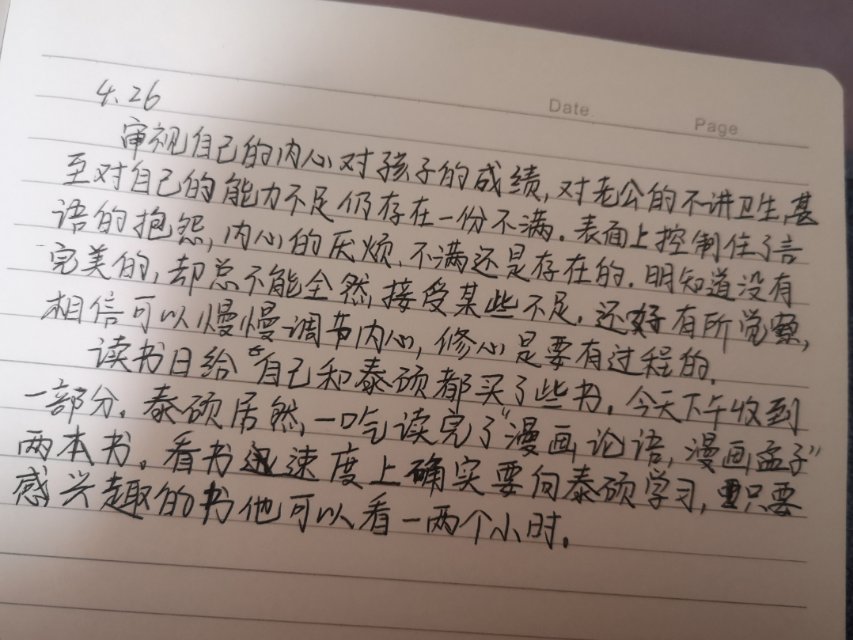 Date
Page
4.26
审视自己的内心对孩子的成绩,对老公的不讲卫生,甚
至对自己的能力不足仍存在一份不满。表面上控制住了言
语的抱怨,内心的厌烦、不满还是存在的。明知道没有
完美的,却总不能全然接受某些不足。还好有所觉察,
相信可以慢慢调节内心,修心是要有过程的。
读书日给自己和泰硕都买了些书。今天下午收到
一部分。泰硕居然,一口气读完了"漫画论语,漫画孟子"
两本书。看书速度上确实要向泰硕学习,只要
感兴趣的书他可以看一两个小时。